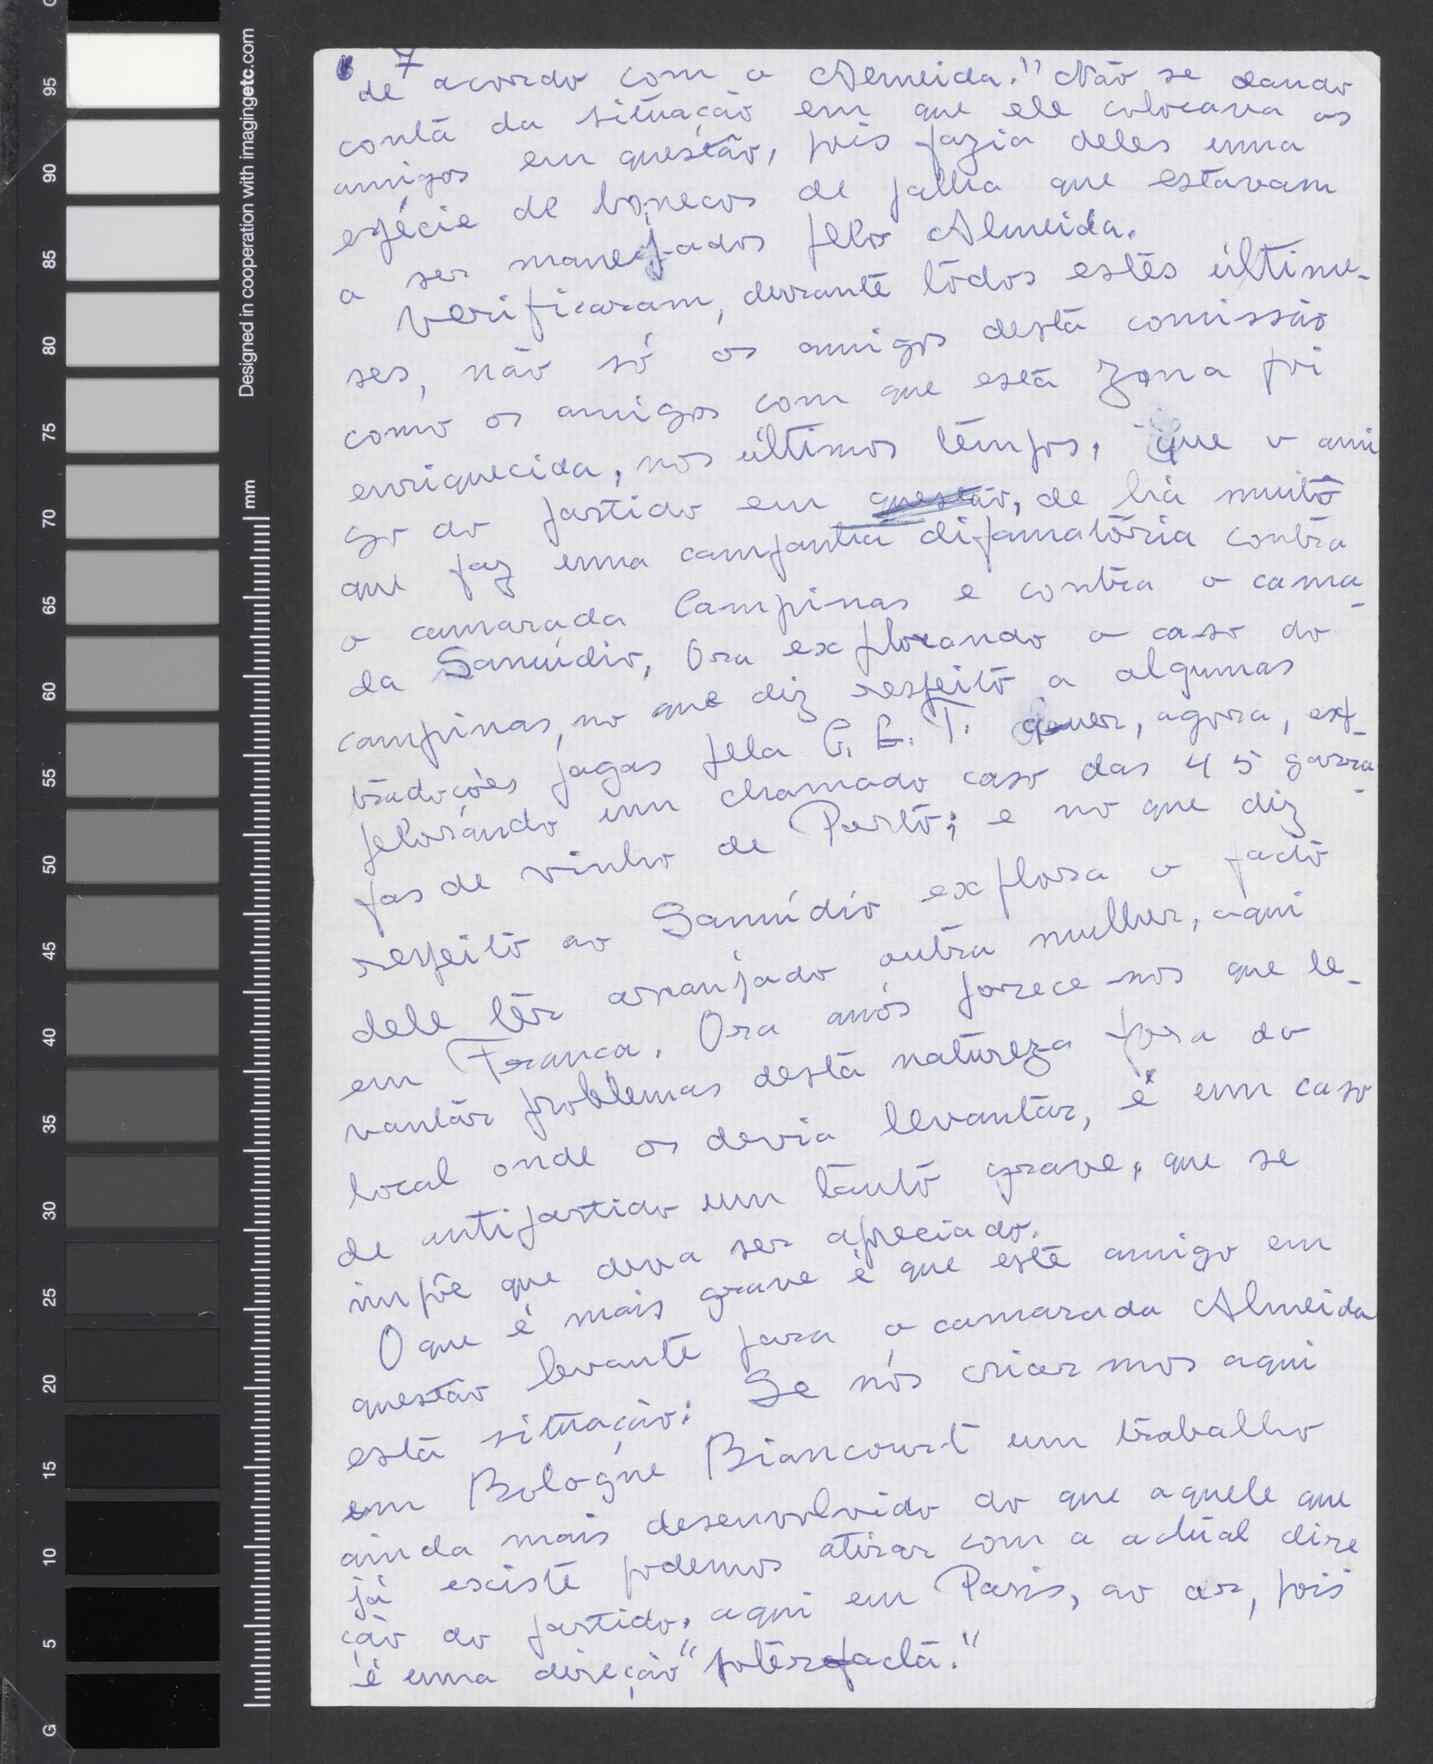 7
de acordo com o Almeida." Não se dando
conta da situação em que ele colocava os
amigos em questão, pois fazia deles uma
espécie de bonecos de palha que estavam
a ser manejados pelo Almeida.
Verificaram, durante todos estes últimu-
ses, não só os amigos desta comissão
como os amigos com que esta zona foi
enriquecida, nos últimos tempos, que o ami
go do partido em questão, de há muito
que faz uma campanha difamatória contra
o camarada Campinas e contra o cama-
da Sanuídio, Ora explorando o caso do
campinas, no que diz respeito a algumas
traduções pagas pela C. G. T. quer, agora, ex-
plorando um chamado caso das 45 garra-
fas de vinho de Porto; e no que diz
respeito ao Sanuídio explora o facto
dele ter arranjado outra mulher, aqui
em França. Ora anós parece-nos que le-
vantar problemas desta natureza fora do
local onde os devia levantar, é um caso
de antipartido um tanto grave, que se
impõe que deva ser apreciado.
O que é mais grave é que este amigo em
questão levante para o camarada Almeida
esta situação: Se nós criar mos aqui
em Bologne Biancourt um trabalho
ainda mais desenvolvido do que aquele que
já esciste podemos atirar com a actual dire
ção do partido, aqui em Paris, ao ar, pois
é uma direção "poterefacta."
Designed in cooperation with imagingetc.com
mm
95
90
85
80
75
70
65
60
55
50
45
40
35
30
25
20
15
10
5
G